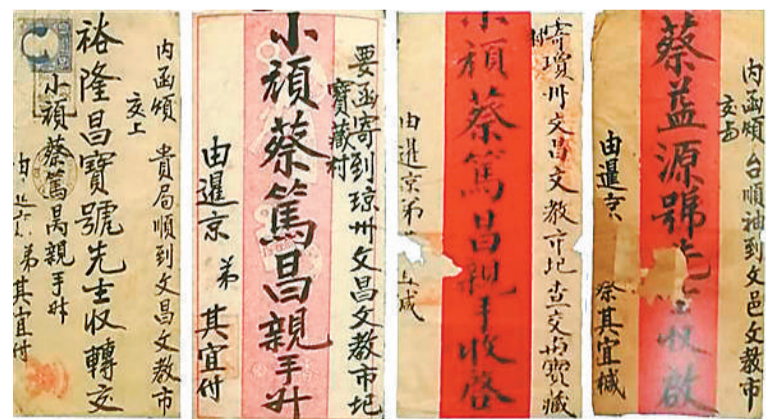 内函煩 貴局順到文昌文教市
交上
裕隆昌寶號先生收轉交
小頑蔡篤昌親手升
弟其宜付
要函寄到琼州文昌文教市圯
寶藏村
小頑蔡篤昌親手升
由暹京 弟 其宜付
寄瓊州文昌文教市圯查交与寶藏
村
小頑蔡篤昌親手收啓
由暹京弟
内函煩 台順袖到文邑文教市
交与
蔡益源號先生收啟
由暹京 蔡其宜緘